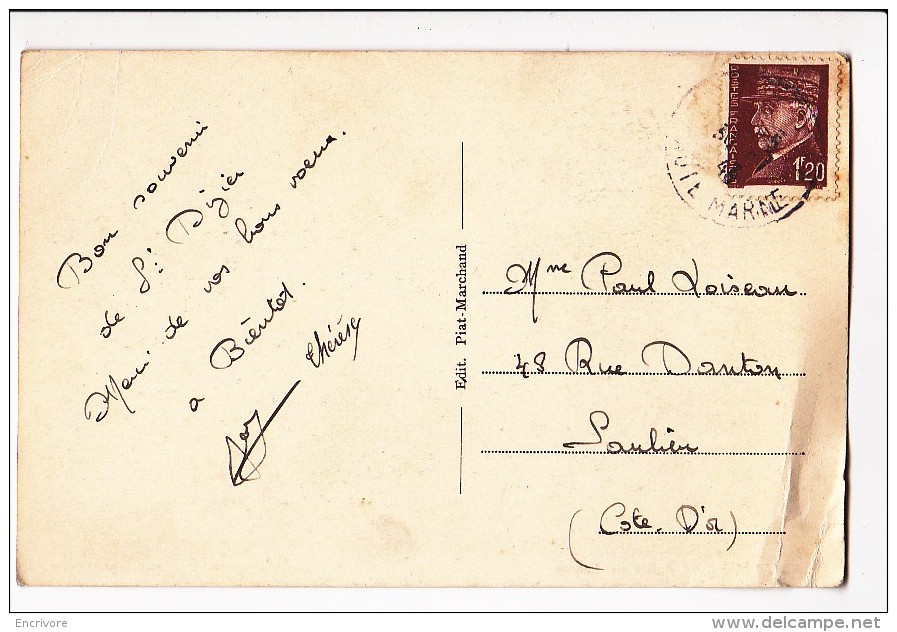 Bon souvenir
de St Dizier
Merci de vos bons voeux.
a Bientot.
Thérèse
Edit. Piat-Marchand
POSTES FRANÇAISES
1F20
UTE MARNE
Mme Paul Loiseau
48 Rue Danton
Saulieu
(Cote-D'or)
Encrivore
delcampe.net